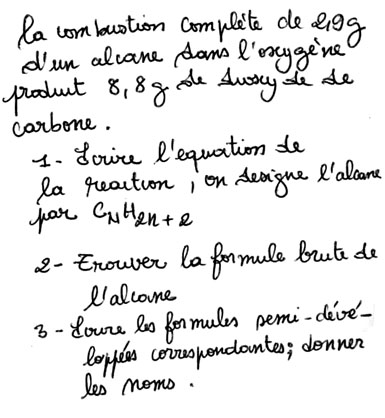 la combustion complète de 2,9g
d'un alcane dans l'oxygène
produit 8,8g de dioxyde de
carbone.
1- Ecrire l'equation de
la reaction, on designe l'alcane
par CNH2n+2
2- Trouver la formule brute de
l'alcane
3- Ecrire les formules semi-dévé-
loppées correspondantes; donner
les noms.